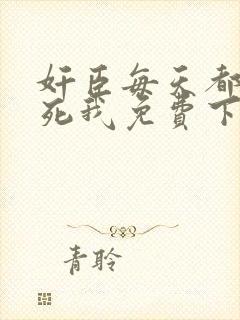 奸臣每天都
死我免费下
青聆